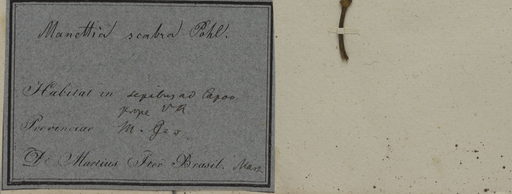 Manettia scabra Pohl.
Habitat in sepibus ad Capoo
prope V R
Provinciae M. Ger.
Dr Martius Iter Brasil. Mart